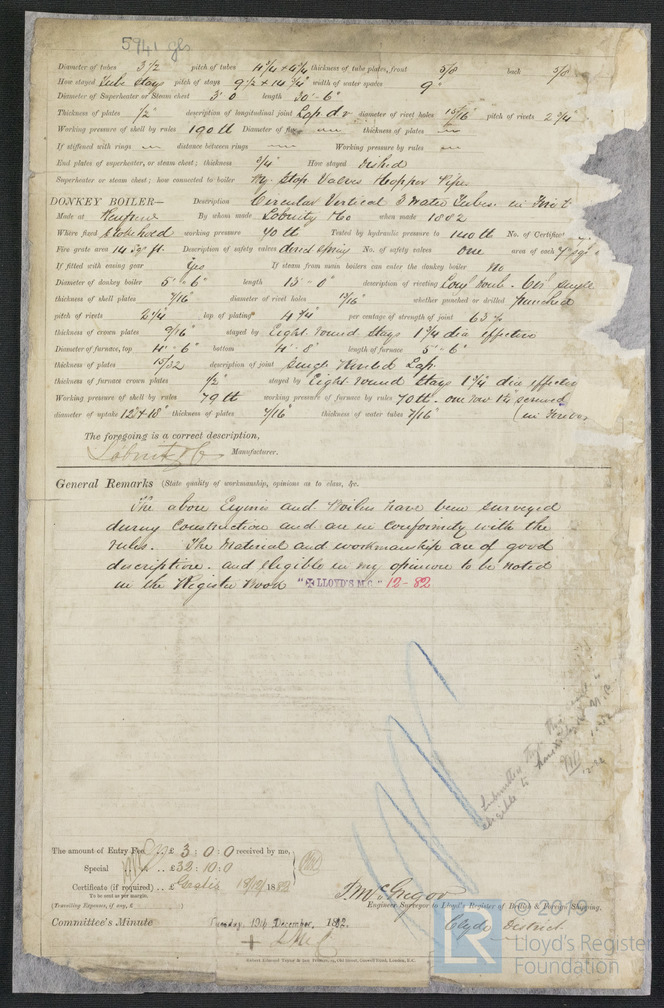 5941 gls
Diameter of tubes 3 1/2 pitch of tubes 4 3/4 + 4 3/4 thickness of tube plates, front 5/8 back 5/8
How stayed Tube Stays pitch of stays 9 1/2 + 14 3/4" width of water spaces 9"
Diameter of Superheater or Steam chest 3' 0 length 30' - 6"
Thickness of plates 1/2" description of longitudinal joint Lap d r diameter of rivet holes 15/16" pitch of rivets 2 3/4"
Working pressure of shell by rules 190 lb Diameter of flue thickness of plates
If stiffened with rings distance between rings Working pressure by rules
End plates of superheater, or steam chest; thickness 3/4" How stayed Dished
Superheater or steam chest; how connected to boiler By Stop Valves Copper Pipes
DONKEY BOILER— Description Circular Vertical 3 Water Tubes in
Made at Renfrew By whom made Lobnitz & Co when made 1882
Where fixed Stokehold working pressure 70 lb Tested by hydraulic pressure to 140 lb No. of Certificate
Fire grate area 14 Sqr ft. Description of safety valves direct spring No. of safety valves one area of each
If fitted with easing gear Yes If steam from main boilers can enter the donkey boiler No
Diameter of donkey boiler 5' - 6" length 13' - 0" description of riveting Long Doub. Cir Single
thickness of shell plates 7/16" diameter of rivet holes 13/16" whether punched or drilled Punched
pitch of rivets 2 1/4" lap of plating 4 1/4" per centage of strength of joint 63%
thickness of crown plates 9/16" stayed by Eight round Stays 1 3/4 dia effective
Diameter of furnace, top 4' - 6" bottom 4' - 8" length of furnace 5' - 6"
thickness of plates 15/32 description of joint Single Riveted Lap.
thickness of furnace crown plates 1/2" stayed by Eight round Stays 1 3/4" dia effective
Working pressure of shell by rules 79 lb working pressure of furnace by rules 70 lb. one row screwed
diameter of uptake 12" + 18" thickness of plates 7/16" thickness of water tubes 7/16" (in
The foregoing is a correct description,
Lobnitz & Co Manufacturer.
General Remarks (State quality of workmanship, opinions as to class, &c.
The above Engines and Boilers have been surveyed
during construction and are in conformity with the
rules. The Material and workmanship are of good
description. and Eligible in my opinion to be noted
in the Register Book "✠ LLOYD'S M.C." 12-82
Submitted that this
eligible to have
The amount of Entry Fee .. £ 3 : 0 : 0 received by me,
Special .. £ 32 : 10 : 0
Certificate (if required) .. £ Gratis 18/12/1882
To be sent as per margin.
(Travelling Expenses, if any, £
J. McGregor
Engineer Surveyor to Lloyd's Register of British & Foreign Shipping.
Committee's Minute Tuesday, 19th December, 1882.
Clyde District.
+ LMC
LR
© 2019
Lloyd's Register
Foundation